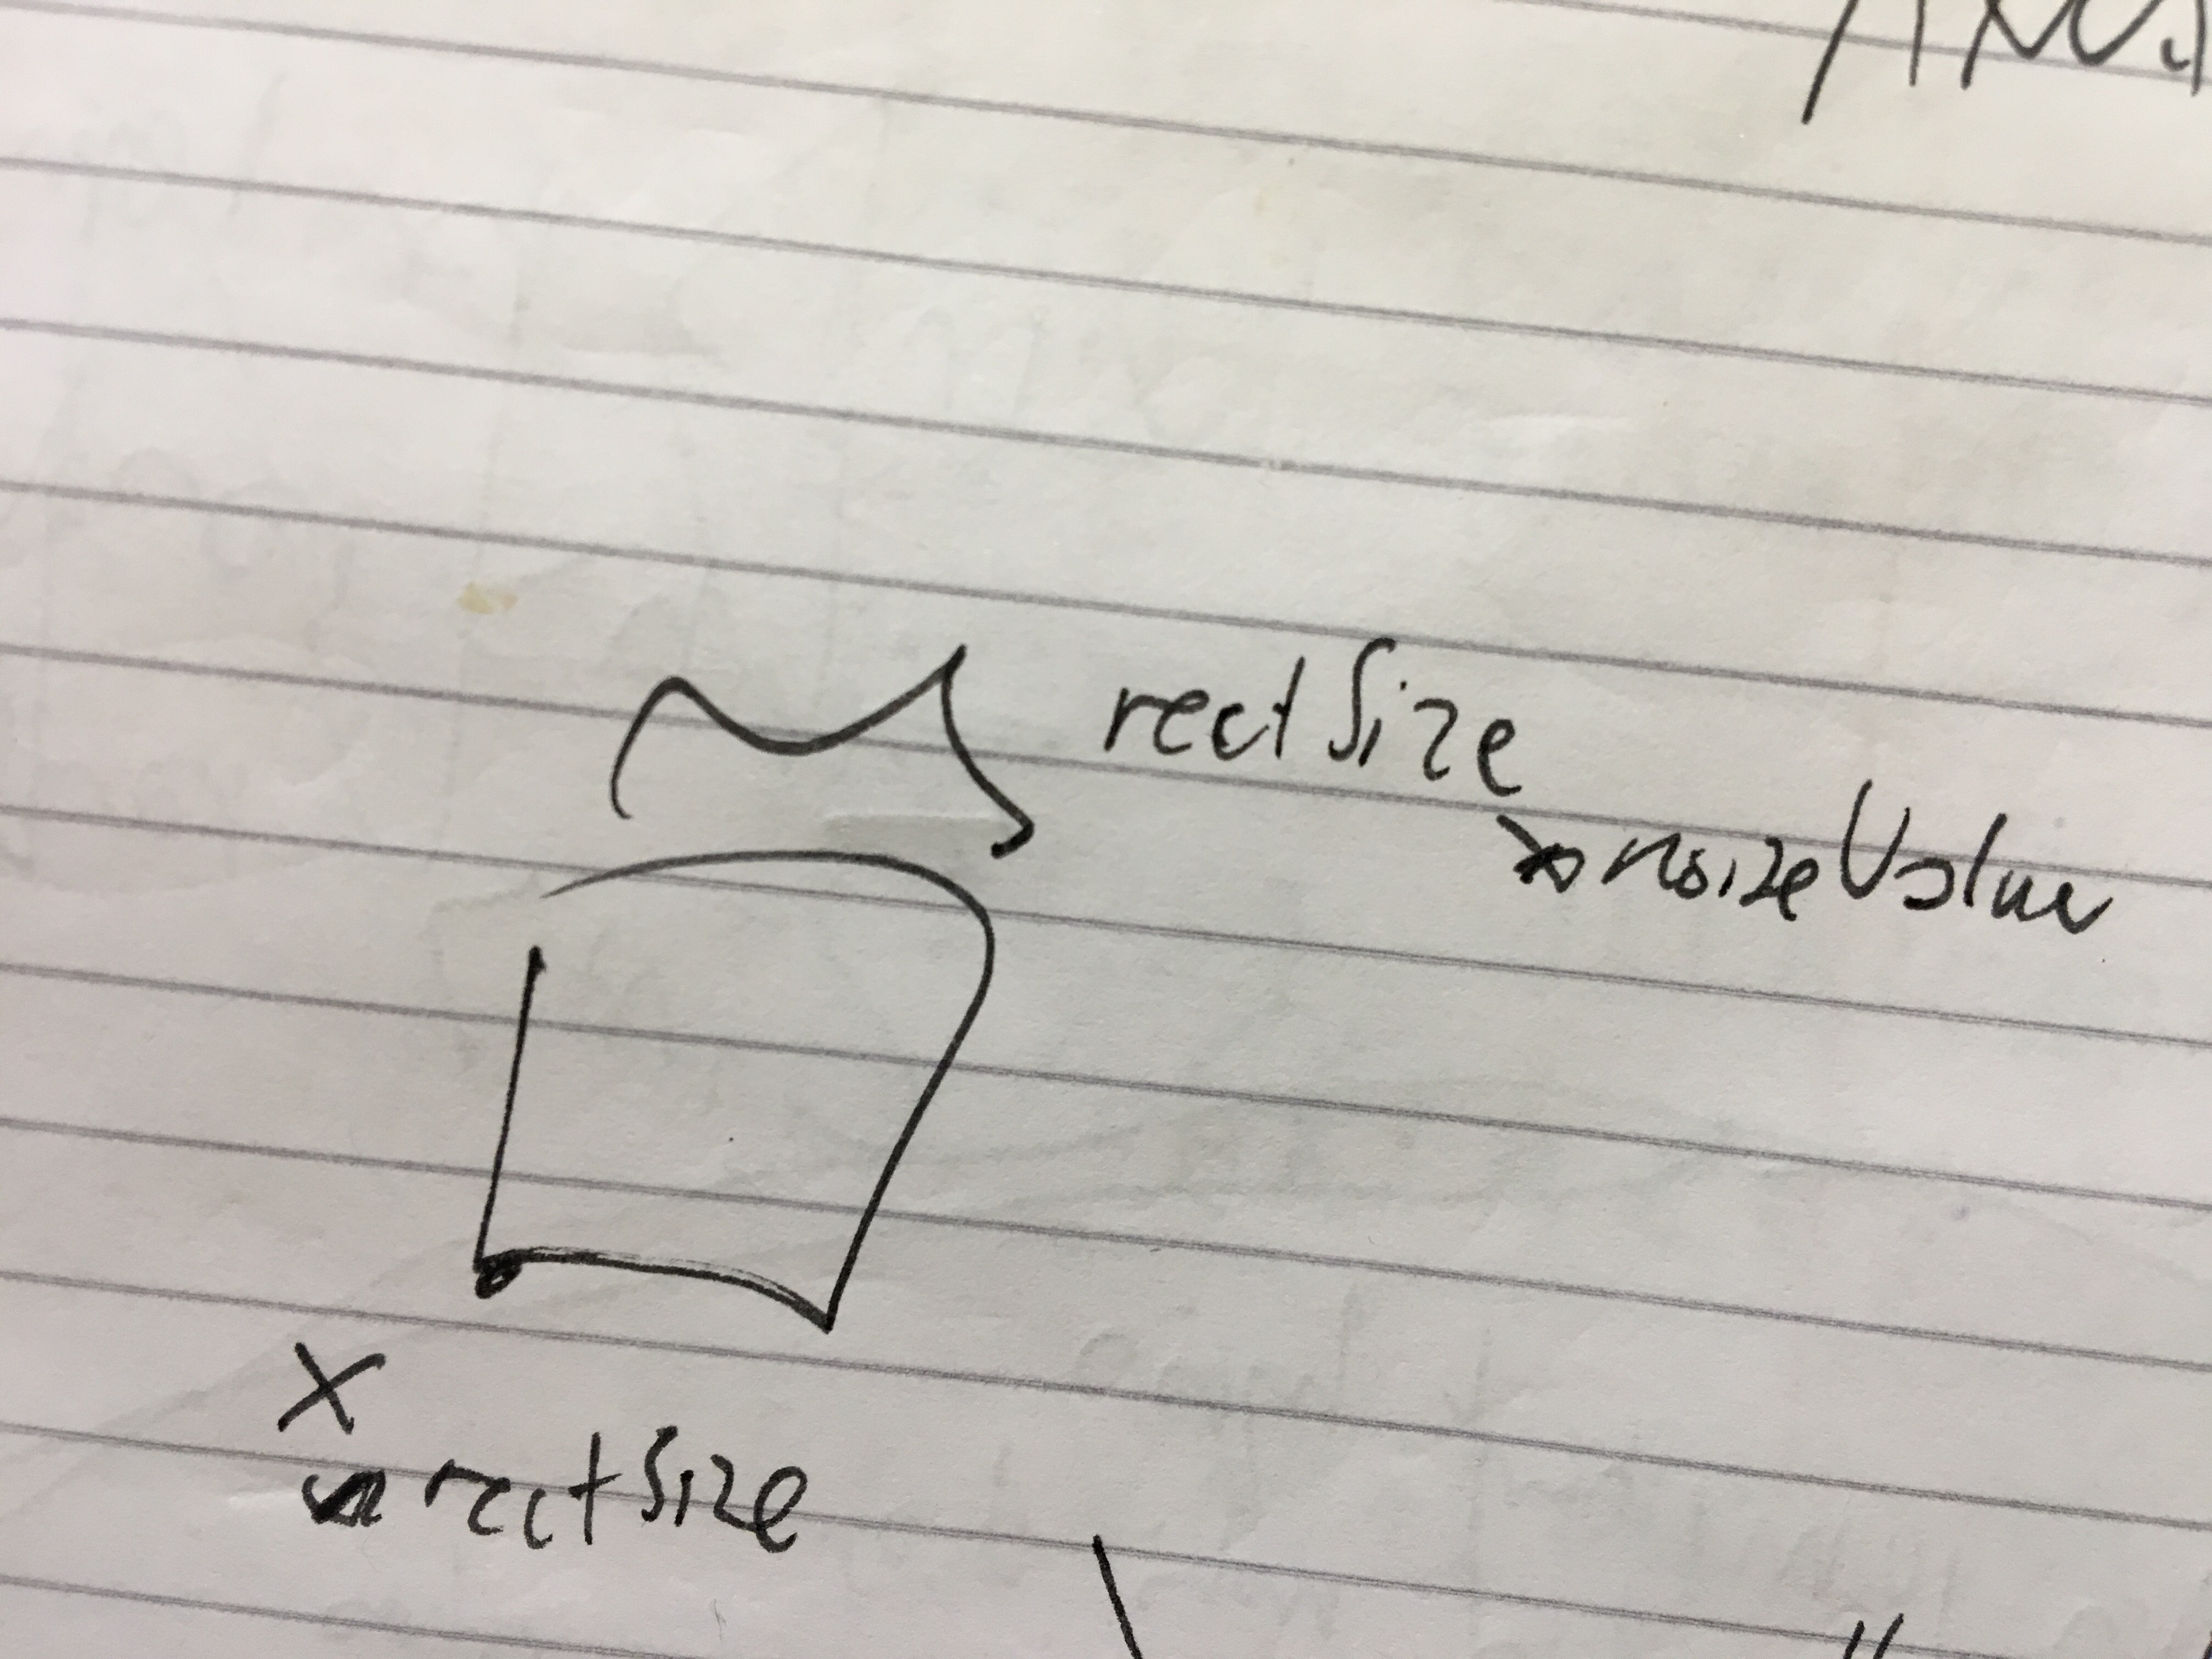 rectSize
noizeValue
x
rectSize